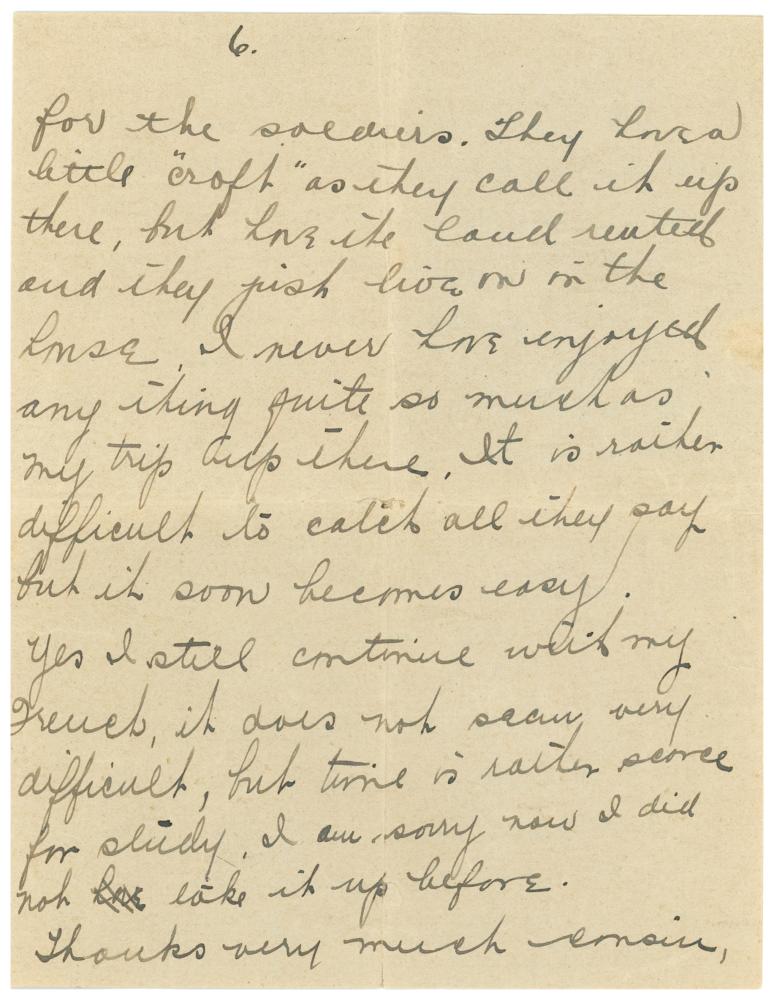 6.
for the soldiers. They have a
little "croft" as they call it up
there, but have the land rented
and they just live on in the
house. I never have enjoyed
any thing quite so much as
my trip up there. It is rather
difficult to catch all they say
but it soon becomes easy.
Yes I still continue with my
French, it does not seem very
difficult, but time is rather scarce
for study. I am sorry now I did
not have take it up before.
Thanks very much cousin,